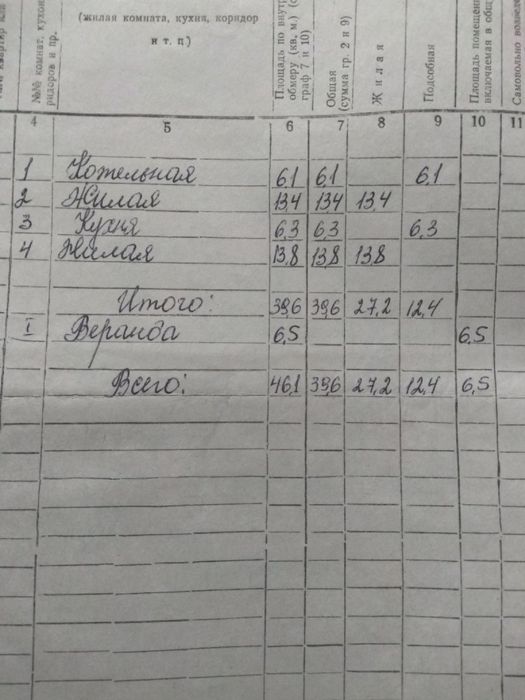 №№ комнат, кухон,
ридоров и пр.
(жилая комната, кухня, коридор
и т. п)
Площадь по внутр
обмеру (кв. м.) (с
граф 7 и 10)
Общая
(сумма гр. 2 и 9)
Жилая
Подсобная
Площадь помещени
включаемая в общ
Самовольно возвед
4 5 6 7 8 9 10 11
1 Котельная 6,1 6,1 6,1
2 Жилая 13,4 13,4 13,4
3 Кухня 6,3 6,3 6,3
4 Жилая 13,8 13,8 13,8
Итого: 39,6 39,6 27,2 12,4
I Веранда 6,5 6,5
Всего: 46,1 39,6 27,2 12,4 6,5